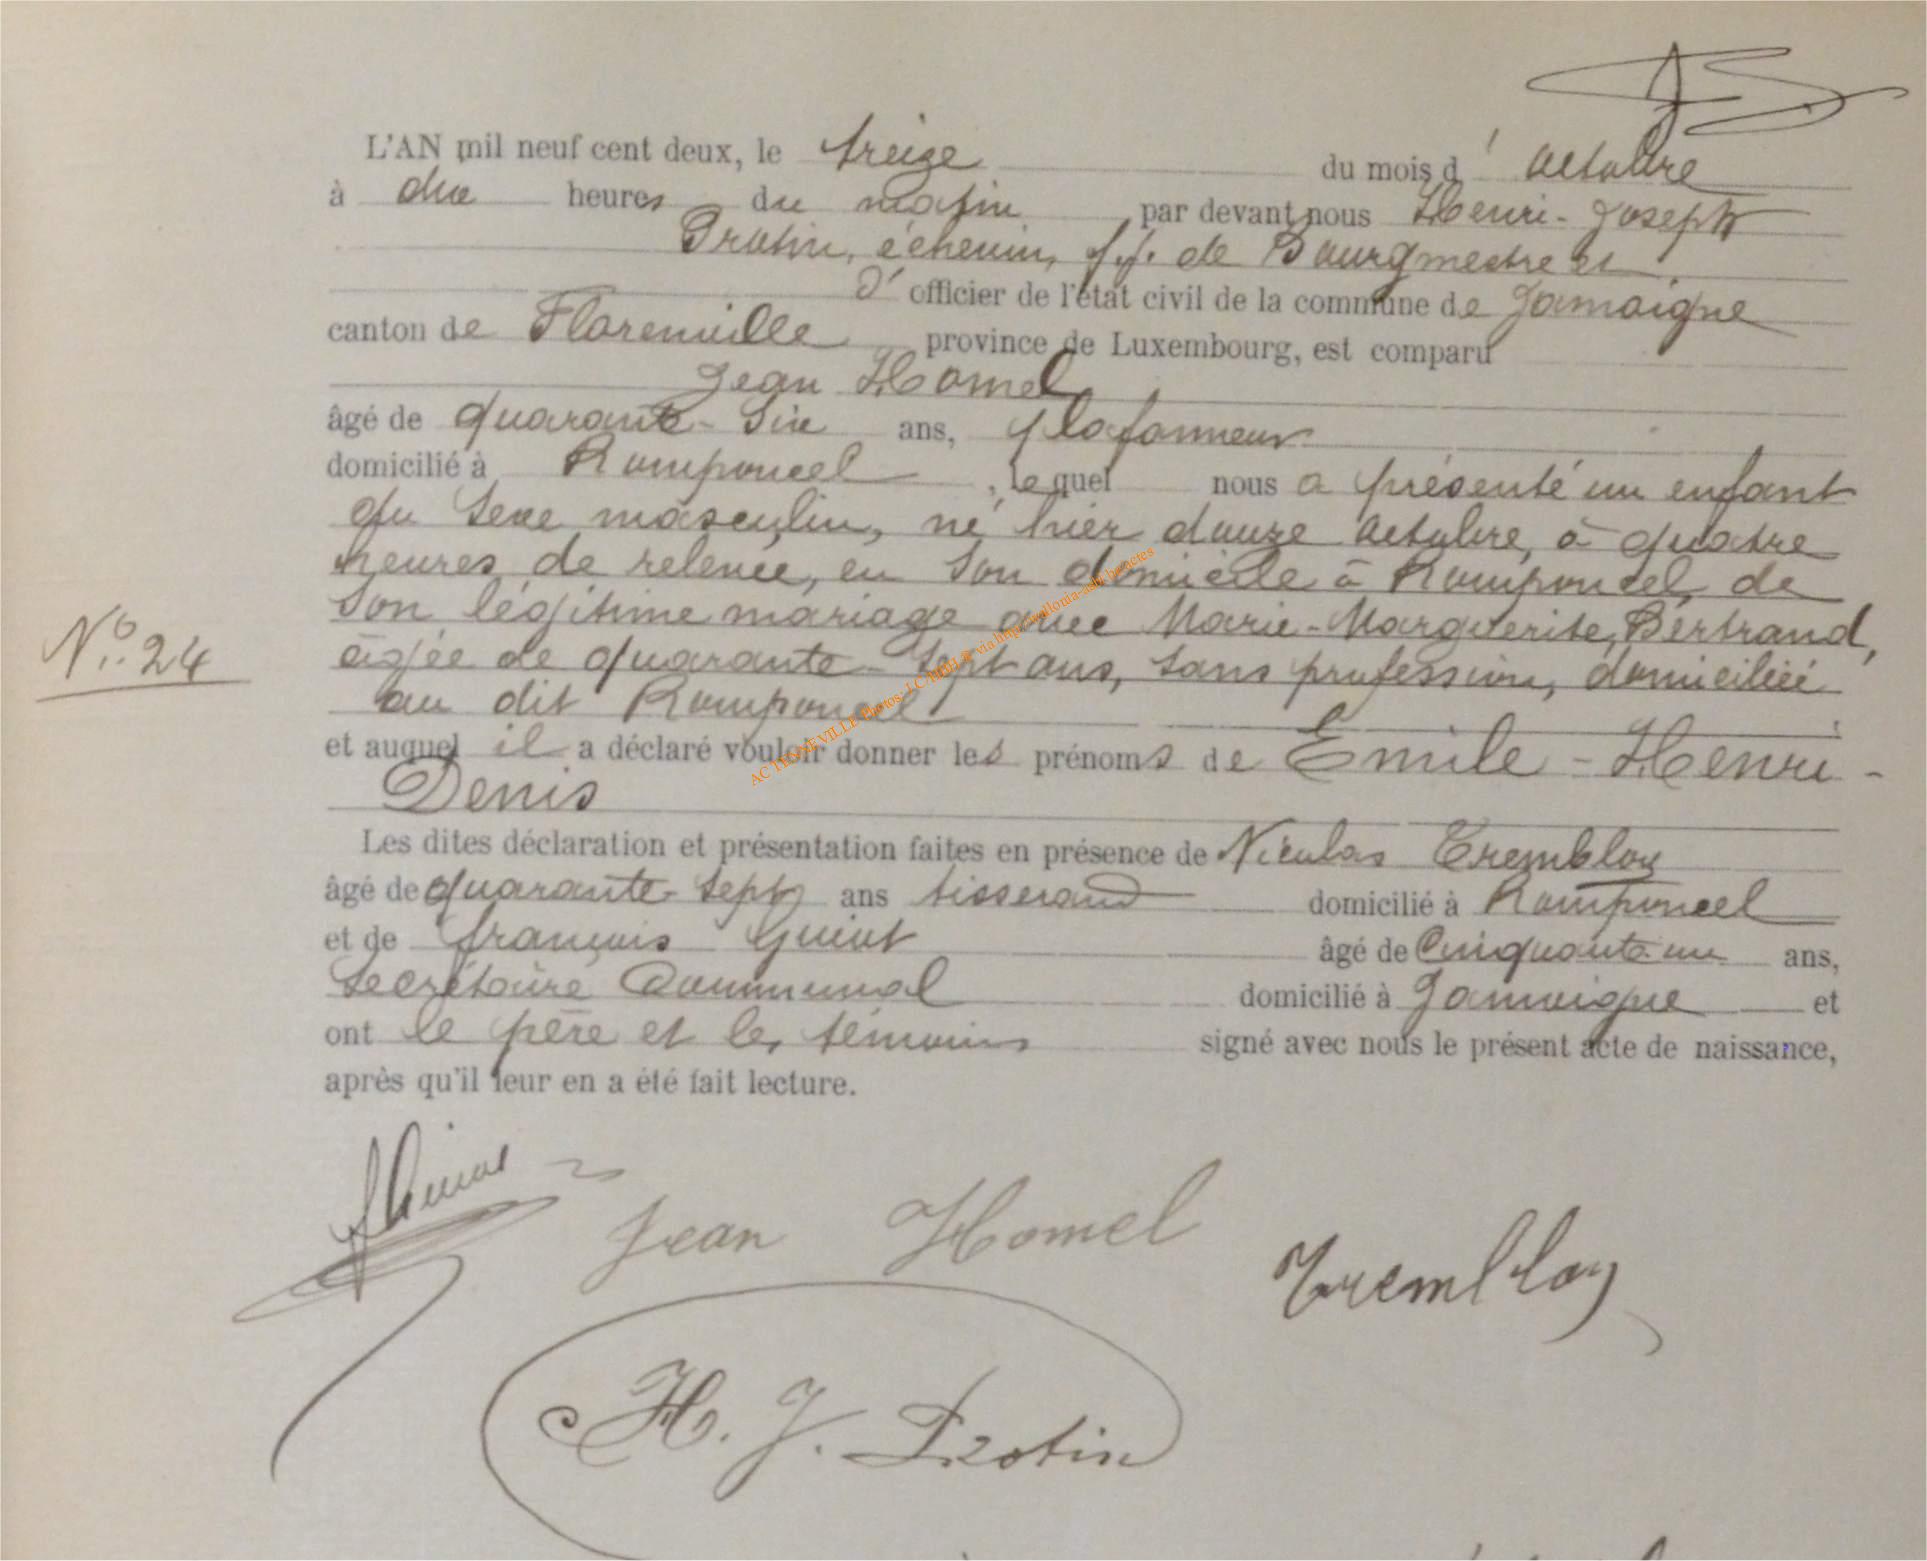 L'AN mil neuf cent deux, le treize du mois d' octobre
à dix heures du matin par devant nous Henri-Joseph
Protin, échevin, f.f. de Bourgmestre et
d' officier de l'état civil de la commune de Jamoigne
canton de Florenville province de Luxembourg, est comparu
Jean Homel
âgé de quarante-six ans, plafonneur
domicilié à Romponcel, lequel nous a présenté un enfant
du sexe masculin, né hier douze octobre, à quatre
heures de relevée, en son domicile à Romponcel, de
son légitime mariage avec Marie-Marguerite, Bertrand,
âgée de quarante-sept ans, sans profession, domiciliée
N° 24
au dit Romponcel
et auquel il a déclaré vouloir donner les prénoms de Emile-Henri-
Denis
Les dites déclaration et présentation faites en présence de Nicolas Trembloy
âgé de quarante-sept ans tisserand domicilié à Romponcel
et de françois Guiot âgé de Cinquante-un ans,
Secrétaire Communal domicilié à Jamoigne et
ont le père et les témoins signé avec nous le présent acte de naissance,
après qu'il leur en a été fait lecture.
Jean Homel
Trembloy
H. J. Protin